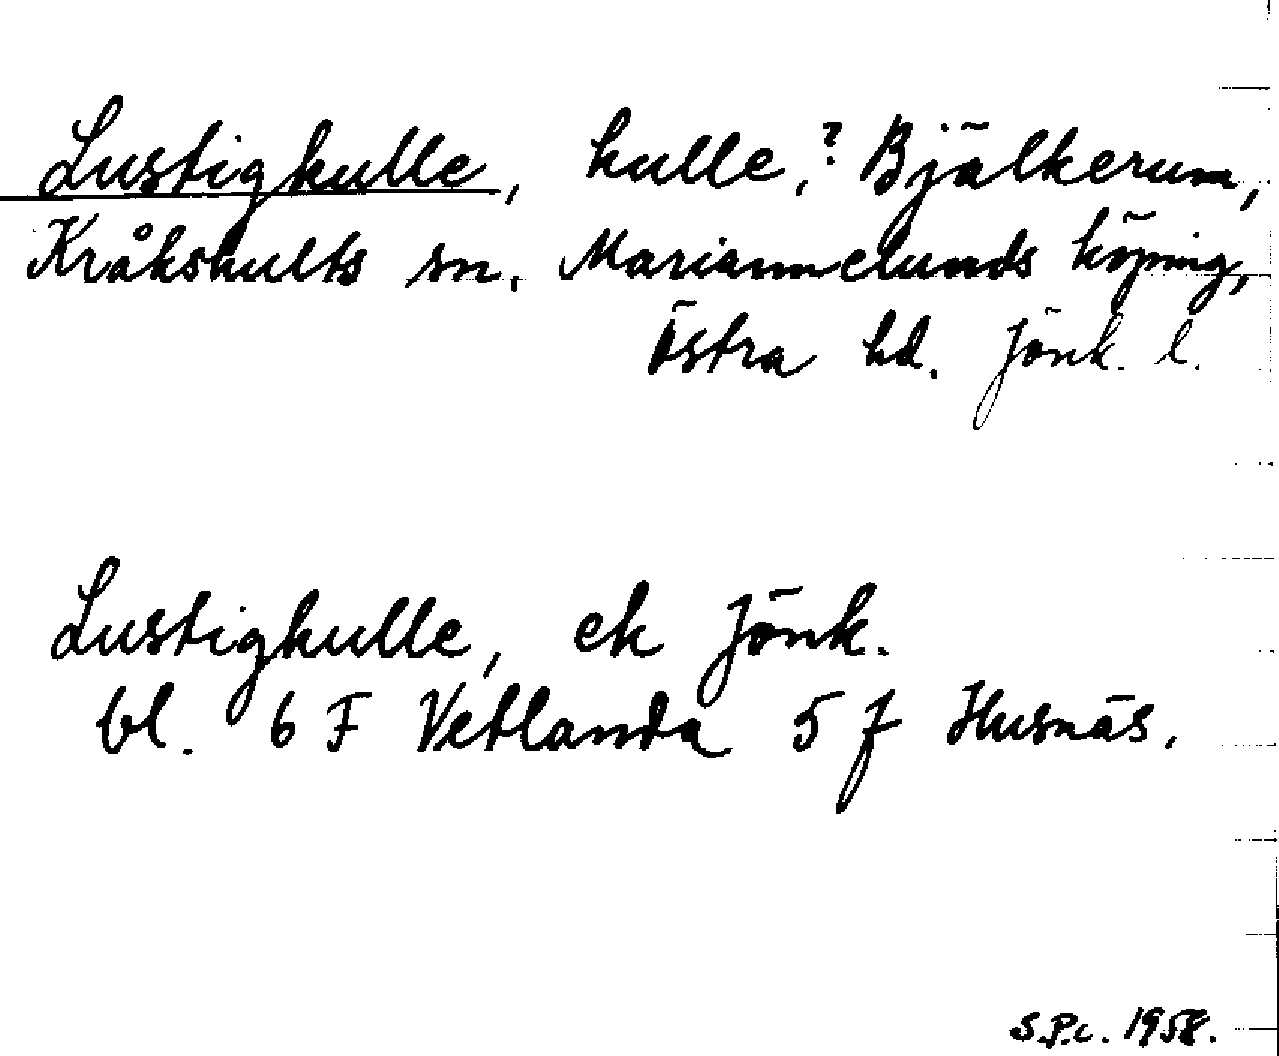 Lustighulle, hulle,? Bjälkerum,
Kråkshults sn. Mariannelunds köping,
Östra hd. Jönk. l.
Lustighulle, ek Jönk.
bl. 6 F Vetlanda 5 f Husnäs.
S.P.c. 1958.